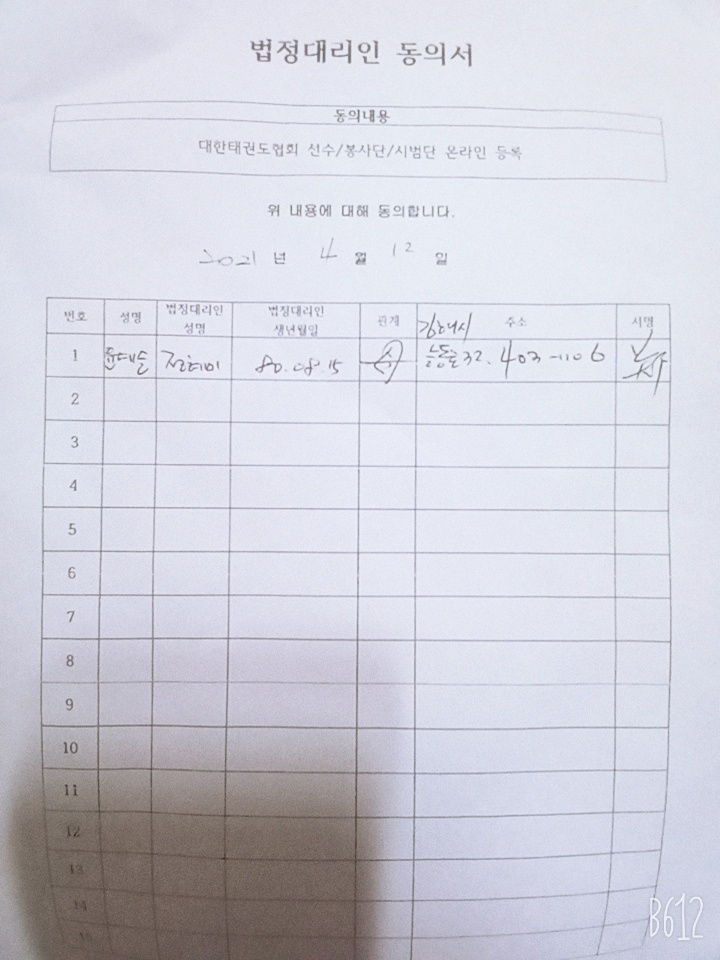 법정대리인 동의서
동의내용
대한태권도협회 선수/봉사단/시범단 온라인 등록
위 내용에 대해 동의합니다.
2021 년 4 월 12 일
번호 성명 법정대리인 성명 법정대리인 생년월일 관계 주소 서명
1 80.08.15 32. 403-1106
2
3
4
5
6
7
8
9
10
11
12
13
14
15
B612